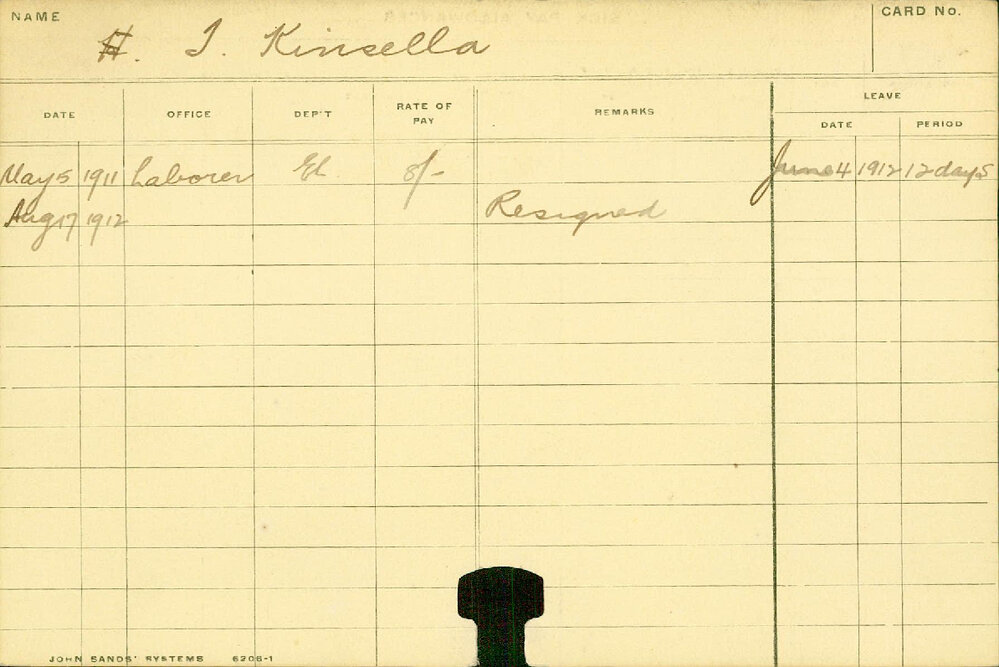 NAME
H. J. Kinsella
CARD No.
DATE OFFICE DEP'T RATE OF PAY REMARKS LEAVE
DATE PERIOD
May 5 1911 Laborer El 8/- June 4 1912 12 days
Aug 17 1912 Resigned
JOHN SANDS' SYSTEMS 6206-1